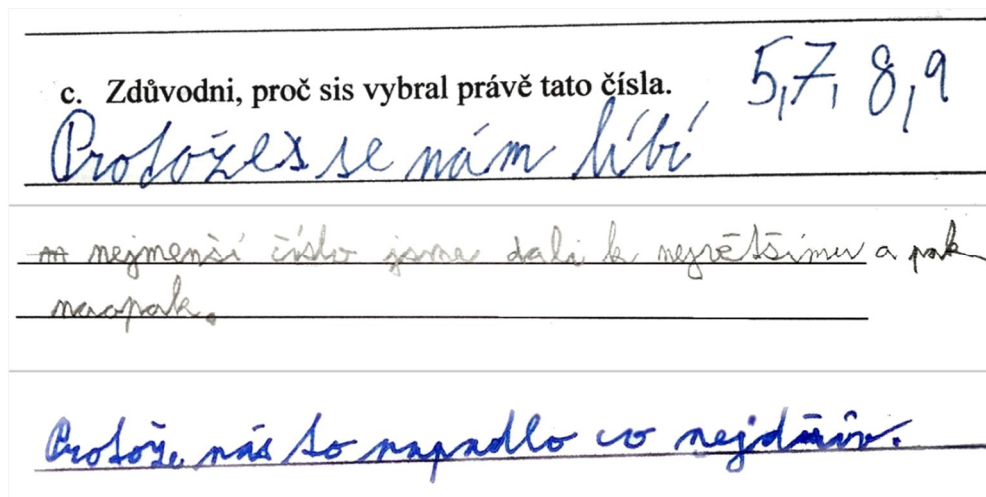 c. Zdůvodni, proč sis vybral právě tato čísla. 5,7, 8,9
Protože se nám líbí
nejmenší číslo jsme dali k největšimu a pak
naopak.
Protože nás to napadlo co nejdřív.